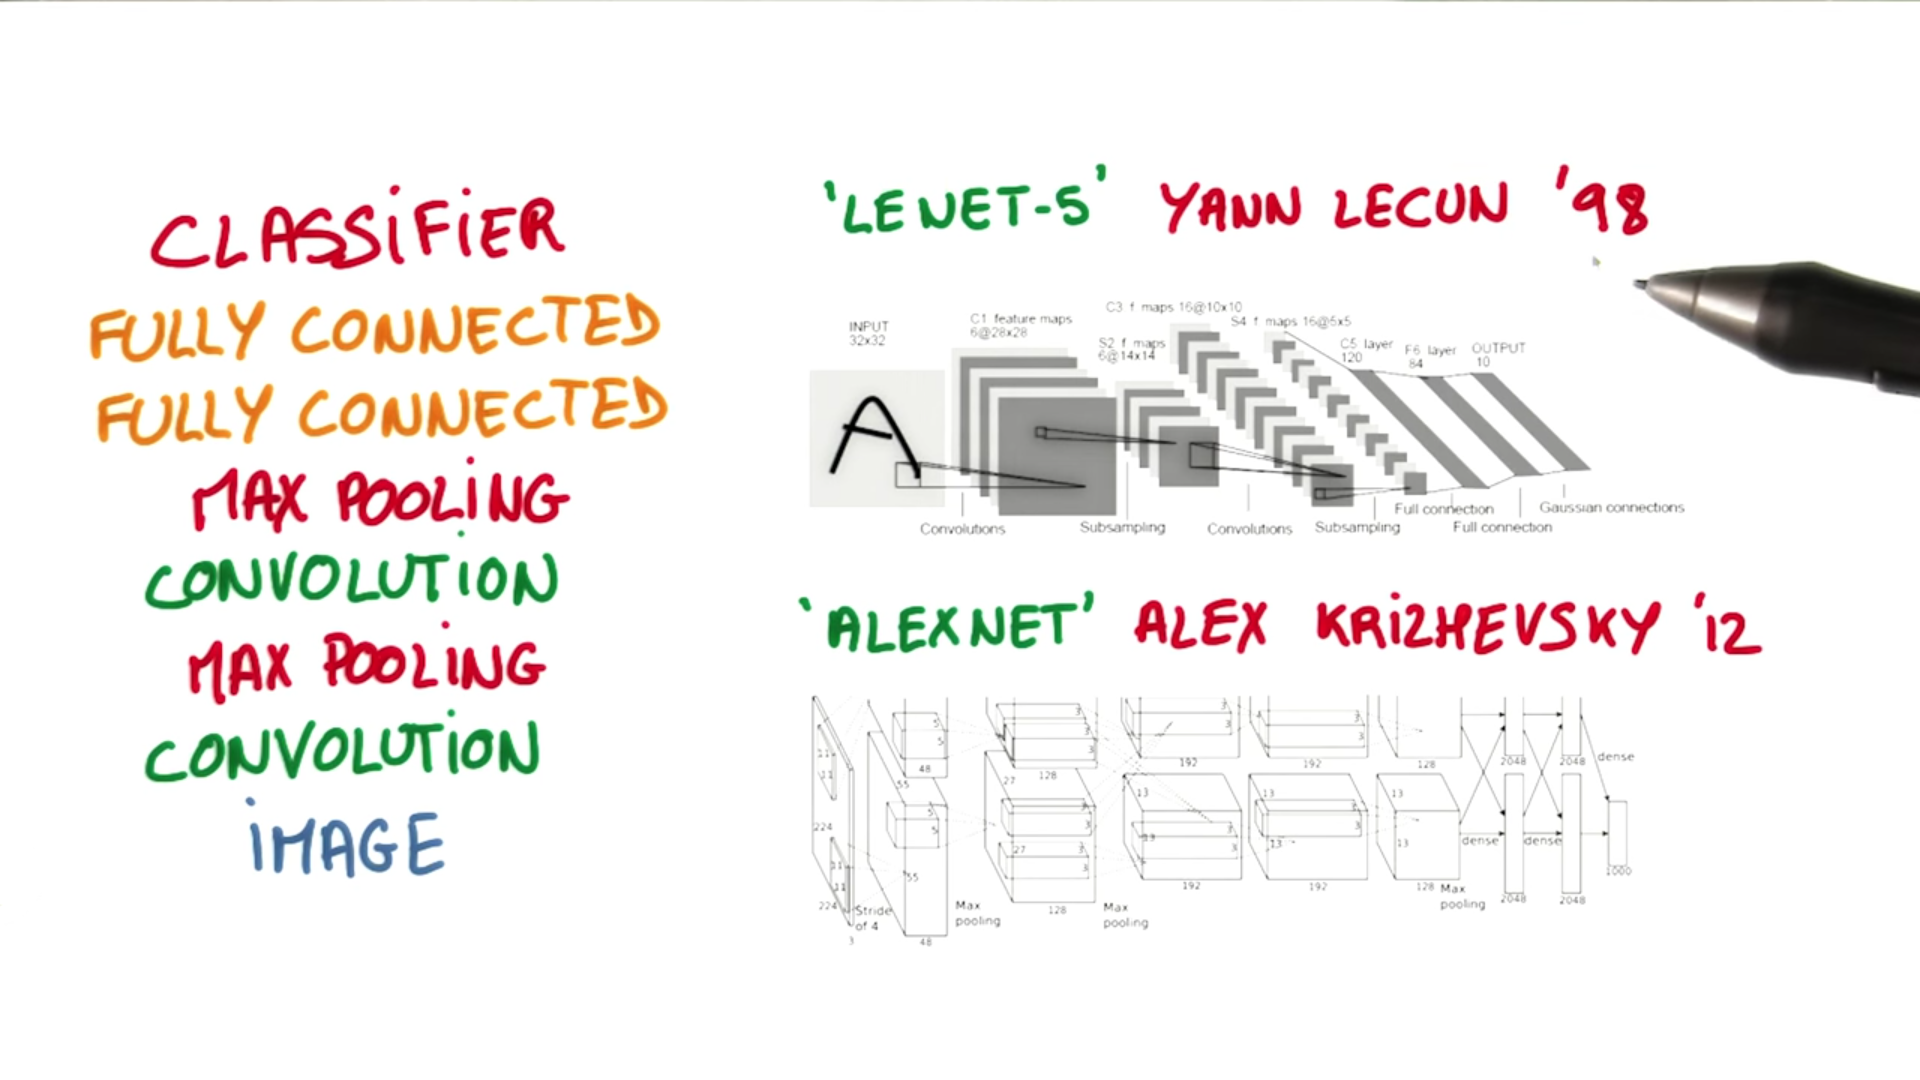 CLASSIFIER
FULLY CONNECTED
FULLY CONNECTED
MAX POOLING
CONVOLUTION
MAX POOLING
CONVOLUTION
IMAGE
'LENET-5' YANN LECUN '98
INPUT
32x32
C1 feature maps
6@28x28
S2 f maps
6@14x14
C3 f maps 16@10x10
S4 f maps 16@5x5
C5 layer
120
F6 layer
84
OUTPUT
10
A
Convolutions
Subsampling
Convolutions
Subsampling
Full connection
Full connection
Gaussian connections
'ALEXNET' ALEX KRIZHEVSKY '12
11
11
224
11
11
224
3
Stride
of 4
5
5
48
55
5
5
55
48
Max
pooling
3
3
3
128
27
3
3
27
3
3
128
Max
pooling
3
3
192
13
3
13
3
192
3
3
192
13
3
13
3
192
128
13
13
128
Max
pooling
2048
2048
dense
dense
dense
2048
2048
1000